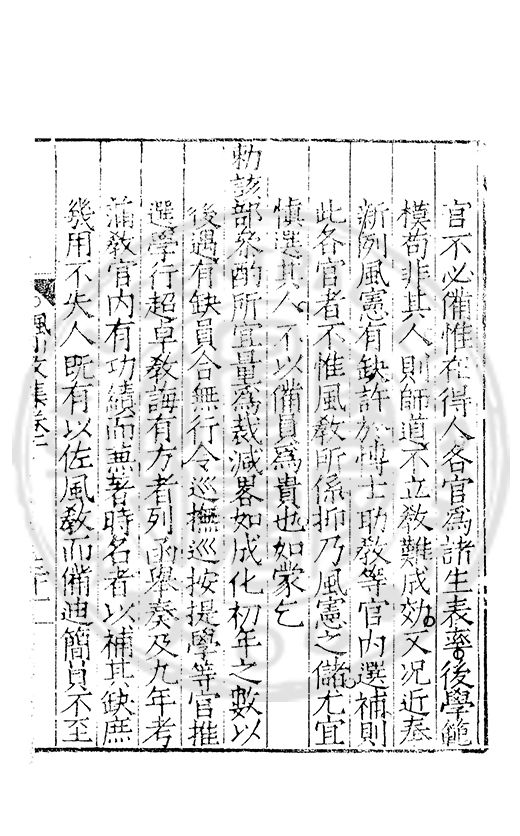 官不必備惟在得人各官爲諸生表率後學範
模苟非其人則師道不立教難成效又況近奉
新例風憲有缺許於博士助教等官內選補則
此各官者不惟風教所係抑乃風憲之儲尤宜
慎選其人不以備員爲貴也如蒙乞
勑該部參酌所宜量爲裁減畧如成化初年之數以
後遇有缺員合無行令巡撫巡按提學等官推
選學行超卓教誨有方者列函舉奏及九年考
滿教官內有功績而兼著時名者以補其缺庶
幾用不失人既有以佐風教而備迪簡員不至
文集卷二